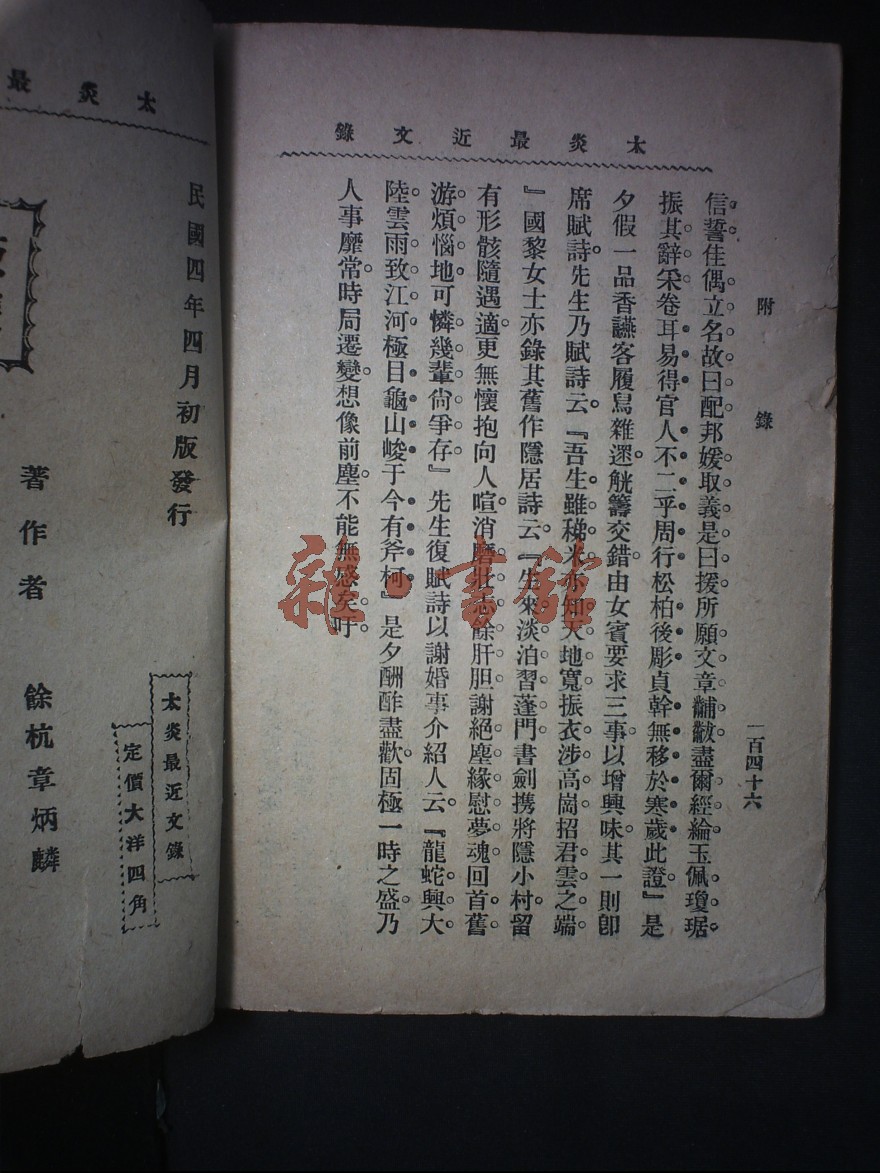 太炎最近文錄
附錄
一百四十六
信誓。佳偶立名。故曰配邦。媛取義。是曰援所願。文章黼黻。盡爾經綸。玉佩瓊琚。
振其辭采。卷耳易得官人。不二乎周行。松柏後彫。貞幹無移於寒歲。此證』是
夕假一品香讌客。履舄雜遝。觥籌交錯。由女賓要求三事。以增興味。其一則卽
席賦詩。先生乃賦詩云。『吾生雖稊米。亦知天地寬。振衣涉高崗。招君雲之端。
』國黎女士亦錄其舊作隱居詩云。『生來淡泊習蓬門。書劍携將隱小村。留
有形骸隨遇適。更無懷抱向人喧。消磨壯志餘肝胆。謝絕塵緣慰夢魂。回首舊
游煩惱地。可憐幾輩尙爭存』先生復賦詩以謝婚事介紹人云。『龍蛇興大
陸。雲雨致江河。極目龜山峻。于今有斧柯』是夕酬酢盡歡。固極一時之盛。乃
人事靡常。時局遷變。想像前塵。不能無感矣。吁。
太炎最
民國四年四月初版發行
太炎最近文錄
定價大洋四角
著作者 餘杭章炳麟
雜·書館